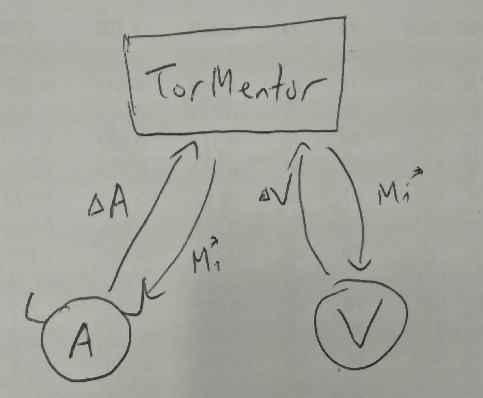 TorMentor
ΔA
Mi
ΔV
Mi
A
V